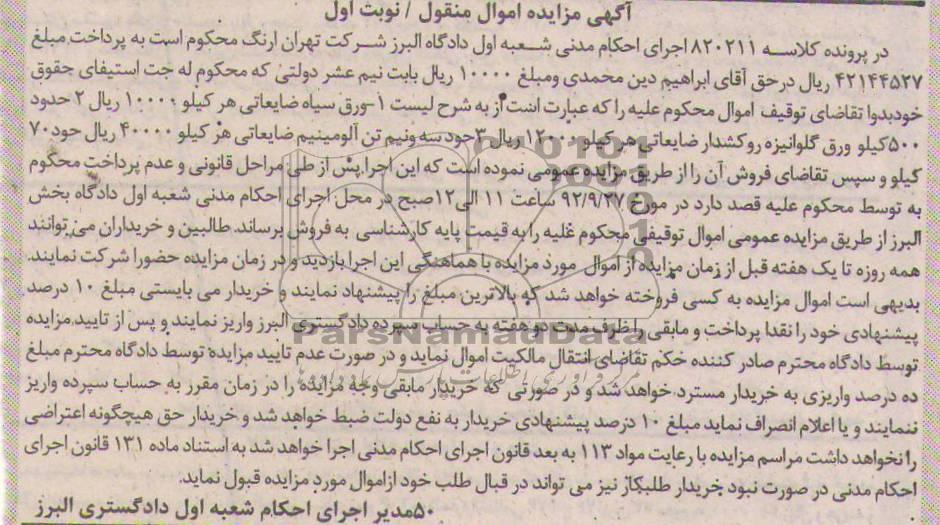 آگهی مزایده اموال منقول / نوبت اول
در پرونده کلاسه ۸۲۰۲۱۱ اجرای احکام مدنی شعبه اول دادگاه البرز شرکت تهران ارنگ محکوم است به پرداخت مبلغ
۴۲۱۴۴۵۲۷ ریال درحق آقای ابراهیم دین محمدی ومبلغ ۱۰۰۰۰ ریال بابت نیم عشر دولتی که محکوم له جت استیفای حقوق
خودبدوا تقاضای توقیف اموال محکوم علیه را که عبارت است از به شرح لیست ۱-ورق سیاه ضایعاتی هر کیلو ۱۰۰۰۰ ریال ۲ حدود
۵۰۰کیلو ورق گلوانیزه روکشدار ضایعاتی هر کیلو ۱۲۰۰۰ریال ۳حود سه ونیم تن آلومینیم ضایعاتی هر کیلو ۴۰۰۰۰ ریال حود۷۰
کیلو و سپس تقاضای فروش آن را از طریق مزایده عمومی نموده است که این اجرا پس از طی مراحل قانونی و عدم پرداخت محکوم
به توسط محکوم علیه قصد دارد در مورخ ۹۲/۹/۲۷ ساعت ۱۱ الی۱۲صبح در محل اجرای احکام مدنی شعبه اول دادگاه بخش
البرز از طریق مزایده عمومی اموال توقیفی محکوم علیه را به قیمت پایه کارشناسی به فروش برساند. طالبین و خریداران می توانند
همه روزه تا یک هفته قبل از زمان مزایده از اموال مورد مزایده با هماهنگی این اجرا بازدید و در زمان مزایده حضورا شرکت نمایند.
بدیهی است اموال مزایده به کسی فروخته خواهد شد که بالاترین مبلغ را پیشنهاد نمایند و خریدار می بایستی مبلغ ۱۰ درصد
پیشنهادی خود را نقدا پرداخت و مابقی را ظرف مدت دو هفته به حساب سپرده دادگستری البرز واریز نمایند و پس از تایید مزایده
ParsNamadData
توسط دادگاه محترم صادر کننده حکم تقاضای انتقال مالکیت اموال نماید و در صورت عدم تایید مزایده توسط دادگاه محترم مبلغ
ده درصد واریزی به خریدار مسترد خواهد شد و در صورتی که خریدار مابقی وجه مزایده را در زمان مقرر به حساب سپرده واریز
ننمایند و یا اعلام انصراف نماید مبلغ ۱۰ درصد پیشنهادی خریدار به نفع دولت ضبط خواهد شد و خریدار حق هیچگونه اعتراضی
را نخواهد داشت مراسم مزایده با رعایت مواد ۱۱۳ به بعد قانون اجرای احکام مدنی اجرا خواهد شد به استناد ماده ۱۳۱ قانون اجرای
احکام مدنی در صورت نبود خریدار طلبکار نیز می تواند در قبال طلب خود ازاموال مورد مزایده قبول نماید.
۵۰مدیر اجرای احکام شعبه اول دادگستری البرز